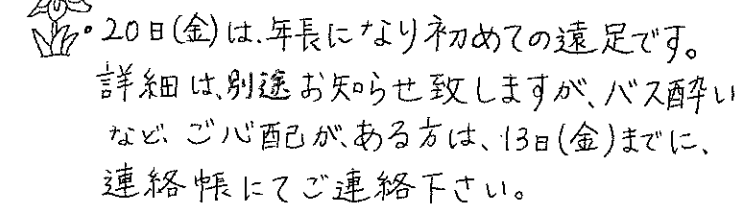 ・20日(金)は、年長になり初めての遠足です。
詳細は、別途お知らせ致しますが、バス酔い
など、ご心配が、ある方は、13日(金)までに、
連絡帳にてご連絡下さい。